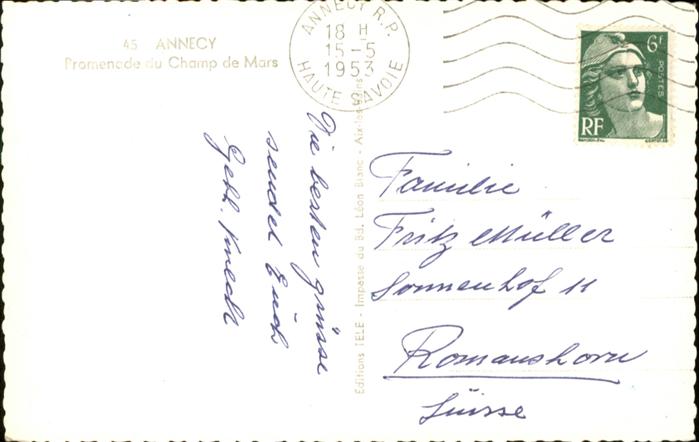 45 ANNECY
Promenade du Champ de Mars
ANNECY R.P.
18 H
15-5
1953
HAUTE SAVOIE
6f
POSTES
RF
Die besten grüsse
sendet Euch
Gebh. Knecht
Editions TELE - Impasse du Bd. Léon Blanc - Aix-les-Bains
Familie
Fritz Müller
Sonnenhof 11
Romanshorn
Suisse